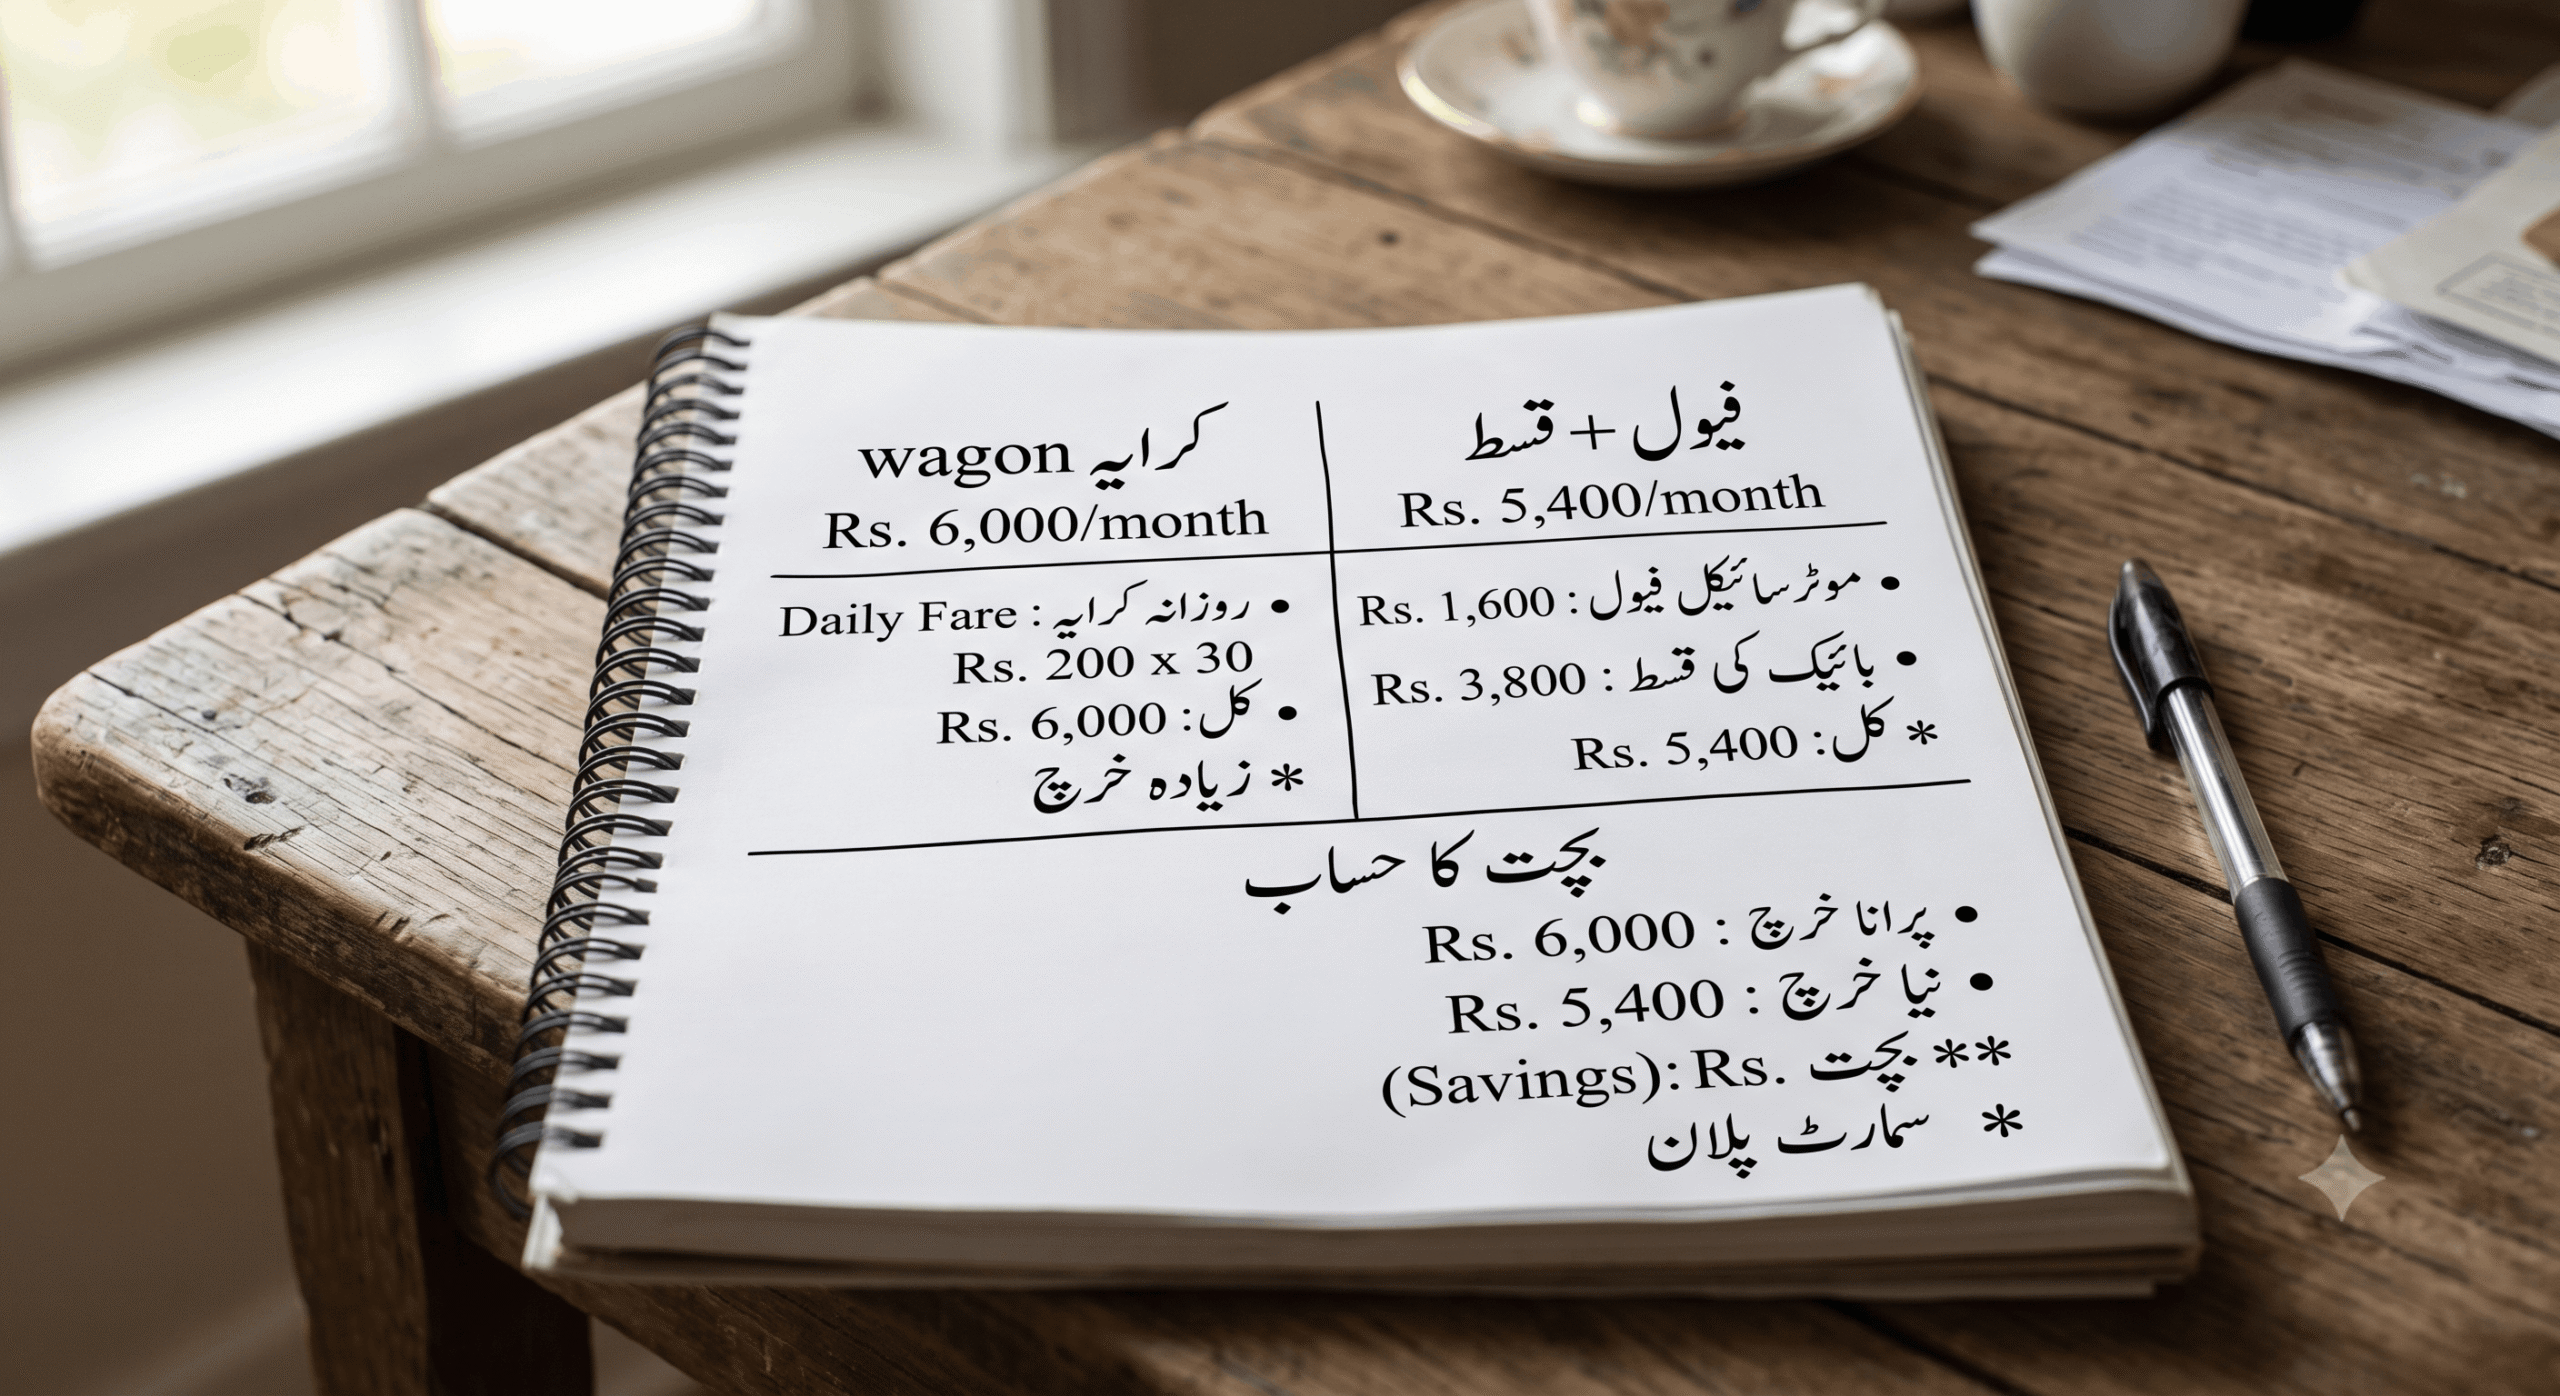 wagon کرایہ
Rs. 6,000/month
• روزانہ کرایہ : Daily Fare
Rs. 200 x 30
• کل: Rs. 6,000
* زیادہ خرچ
فیول + قسط
Rs. 5,400/month
• موٹر سائیکل فیول : Rs. 1,600
• بائیک کی قسط : Rs. 3,800
* کل: Rs. 5,400
بچت کا حساب
• پرانا خرچ : Rs. 6,000
• نیا خرچ : Rs. 5,400
** بچت Rs. :(Savings)
* سمارٹ پلان